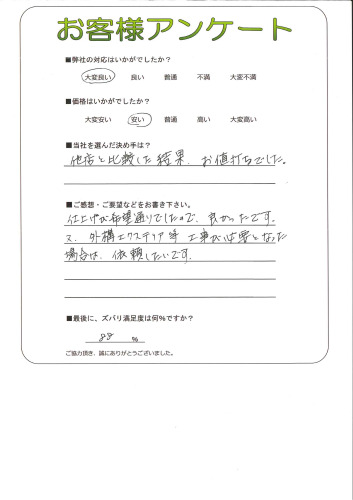 お客様アンケート
■弊社の対応はいかがでしたか?
大変良い 良い 普通 不満 大変不満
■価格はいかがでしたか?
大変安い 安い 普通 高い 大変高い
■当社を選んだ決め手は?
他店と比較した結果、お値打ちでした。
■ご感想・ご要望などをお書き下さい。
仕上げが希望通りでしたので、良かったです。
又、外構エクステリア等 工事が必要となった
場合は、依頼したいです。
■最後に、ズバリ満足度は何%ですか?
88 %
ご協力頂き、誠にありがとうございました。